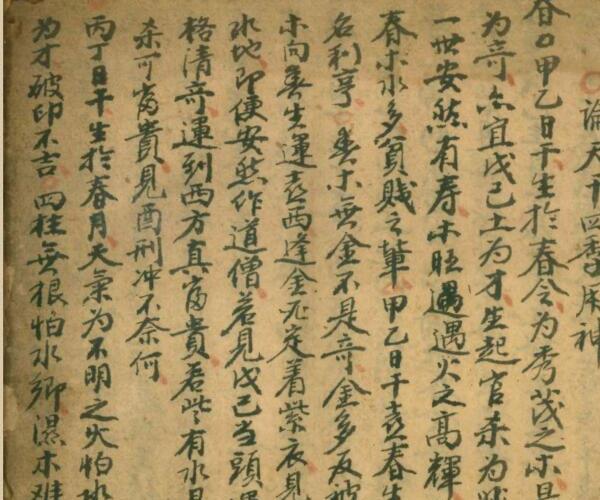 論天干四季用神
春○甲乙日干生於春令为秀茂之木
为奇亦宜戊己土为才生起官杀为
一世安然有寿木旺遇遇火之高輝
春木水多貧賤之輩甲乙日干喜春生
名利亨○春木無金不是奇金多反被
木向春生運喜西逢金死定着紫衣見
水地即便安然作道僧若見戊己当頭遇
格清奇運到西方真富貴若些有水
杀可富貴見酉刑冲不奈何
丙丁日干生於春月天氣为不明之火怕水
为才破印不吉四柱無根怕水鄉濕木难